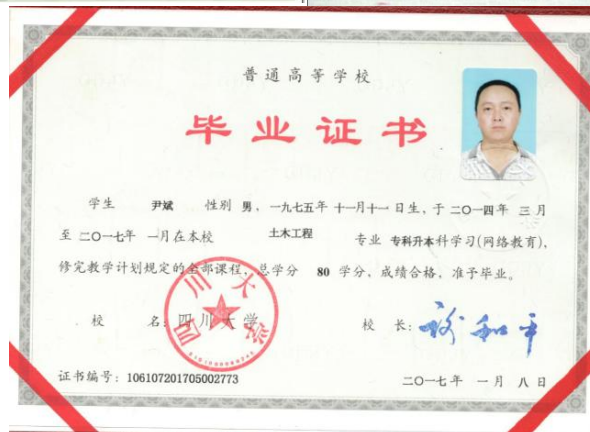 普通高等学校
毕业证书
学生 尹斌 性别 男，一九七五年 十一月十一日生，于二〇一四年 三月
至 二〇一七年 一月在本校 土木工程 专业 专科升本科学习(网络教育)，
修完教学计划规定的全部课程，总学分 80 学分，成绩合格，准予毕业。
校 名：四川大学 校 长：谢和平
四川大学
证书编号：106107201705002773 二〇一七年 一月 八日